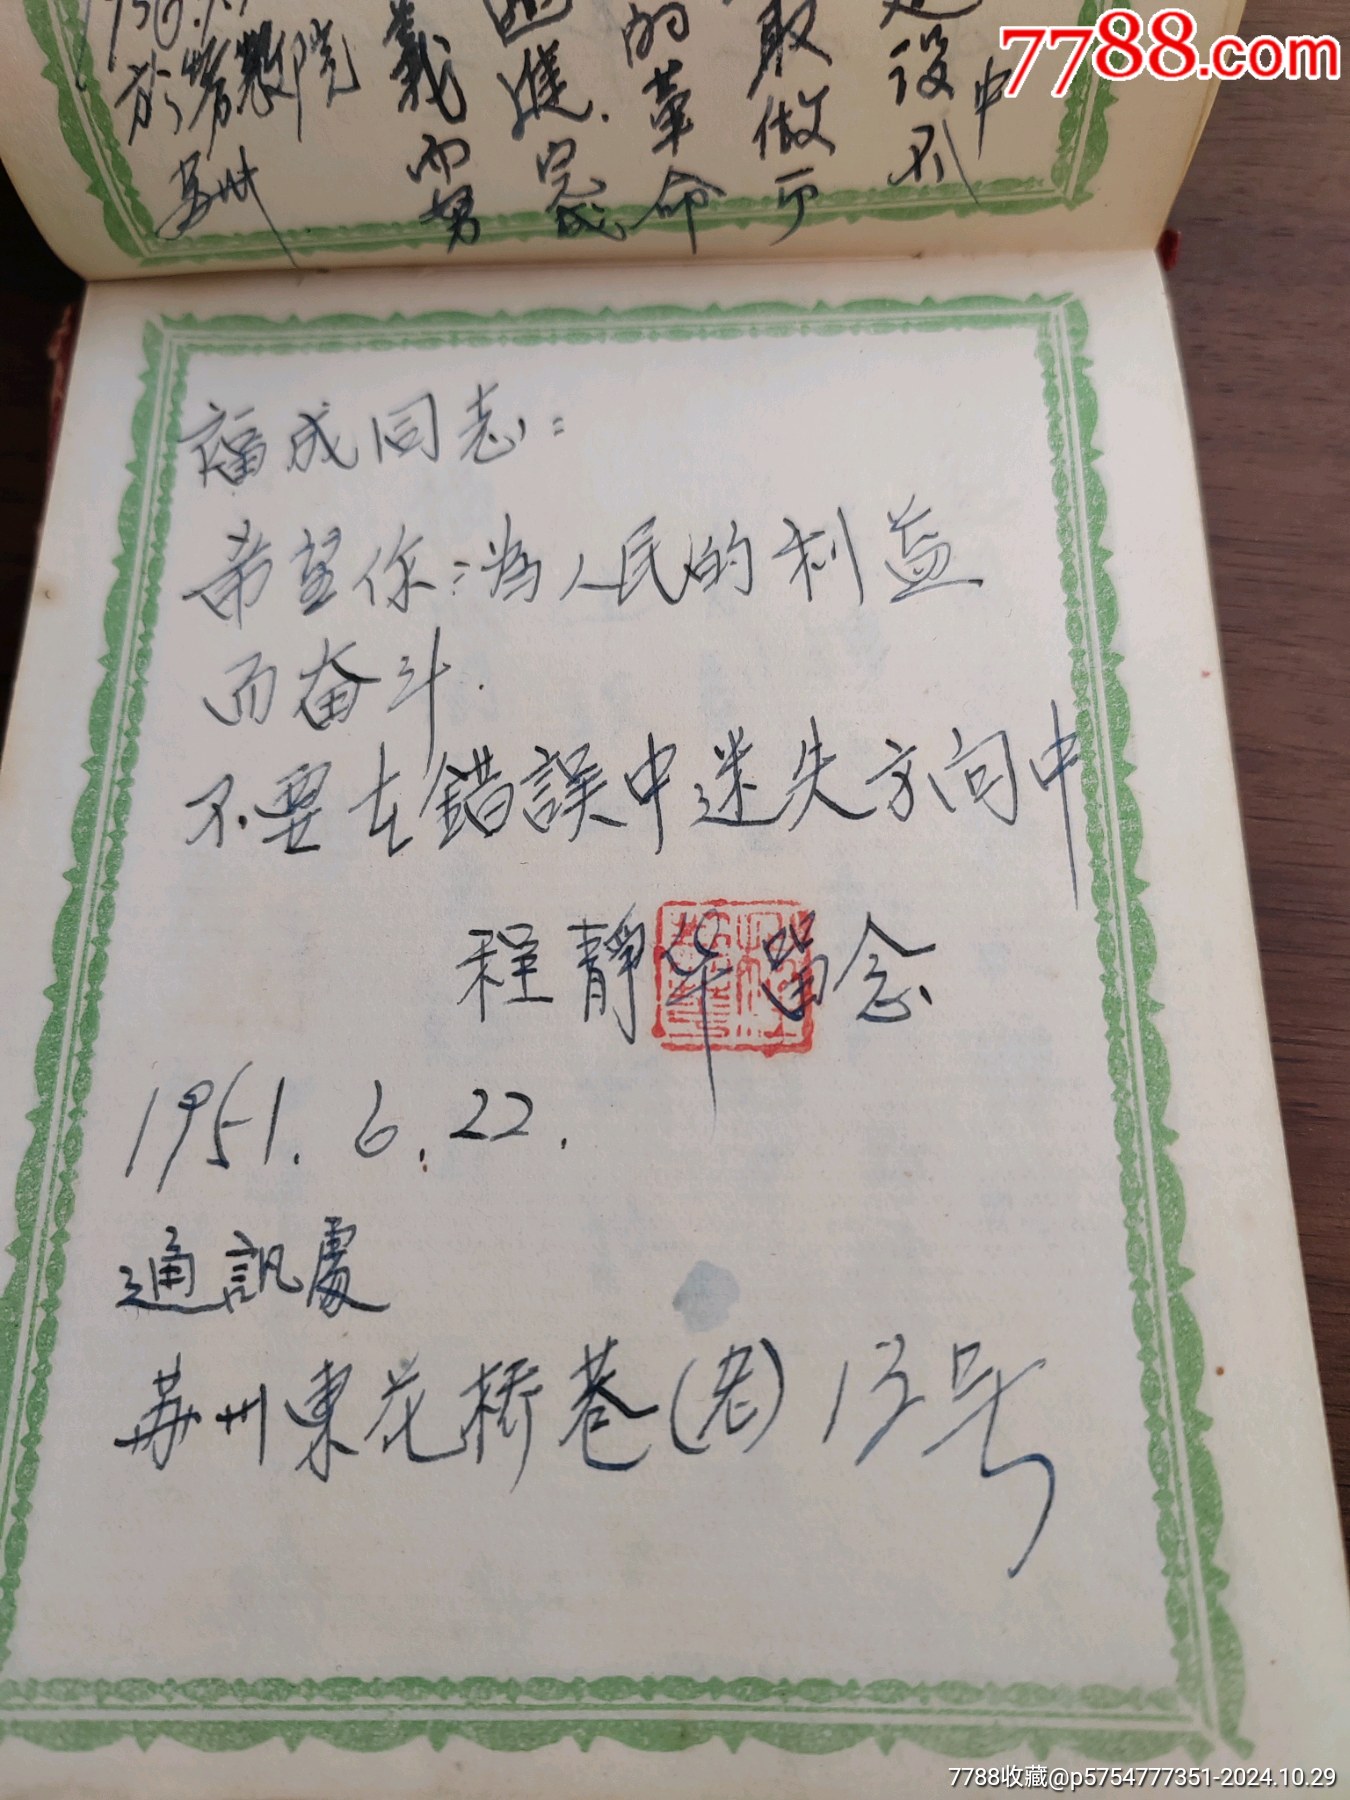 7788.com
建设中不
取做
的革命
进。完成
義而努
於苏州
福成同志：
希望你：為人民的利益
而奋斗.
不要在錯誤中迷失方向中
程靜华留念
1951.6.22.
通訊處
苏州東花桥巷(老)13号
7788收藏@p5754777351-2024.10.29